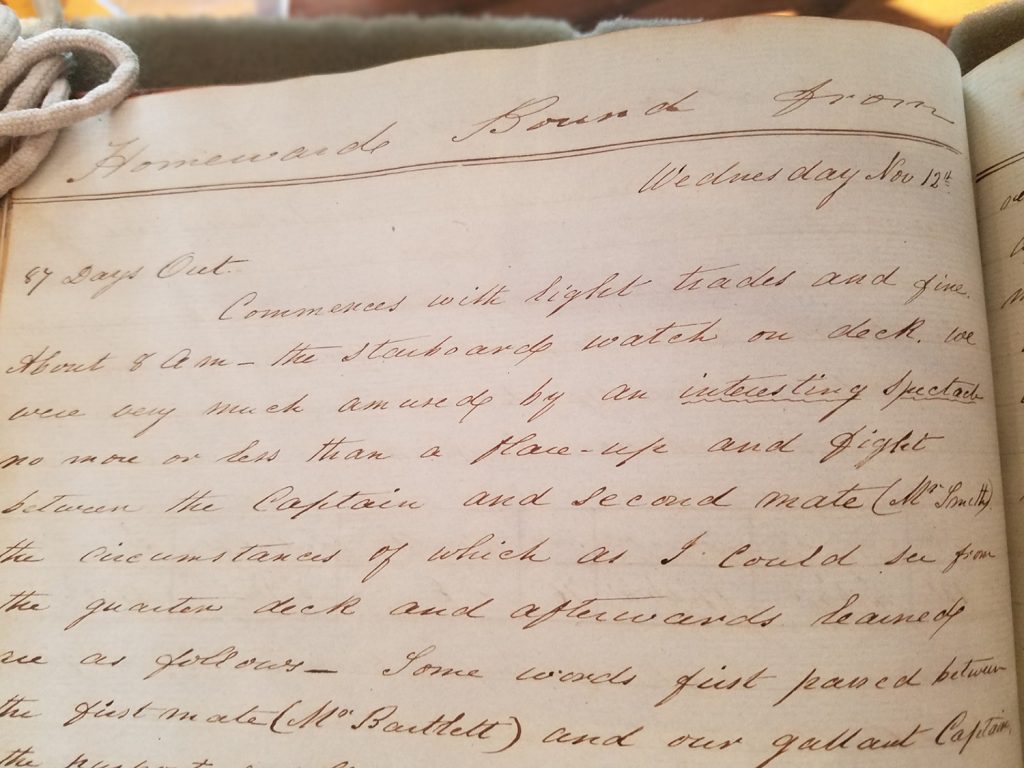 Homewards Bound from
Wednesday Nov 12th
87 Days Out.
Commences with light trades and fine.
About 8 Am - the starboard watch on deck. we
were very much amused by an interesting spectacle
no more or less than a flare-up and fight
between the Captain and second mate (Mr Smith)
the circumstances of which as I could see from
the quarter deck and afterwards learned
are as follows - Some words first passed between
the first mate (Mr Bartlett) and our gallant Captain,
the